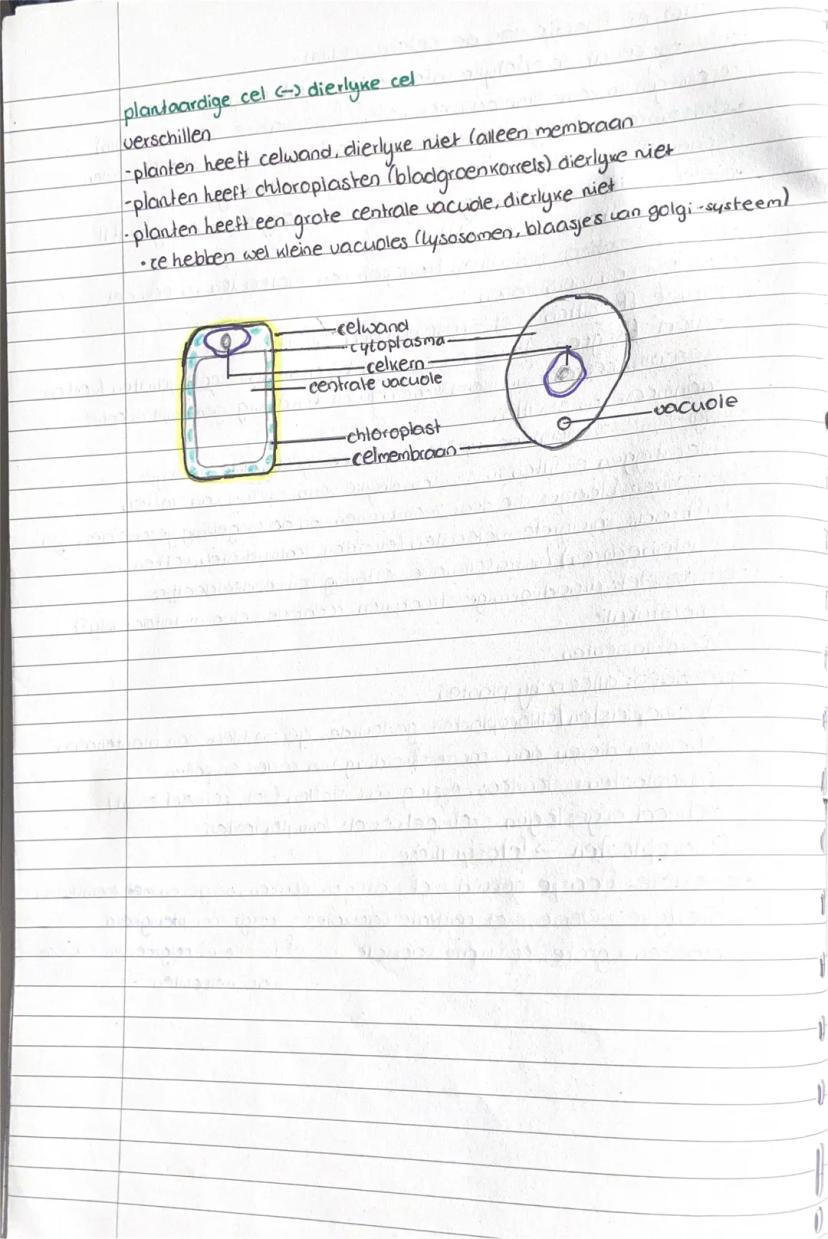 plantaardige cel ↔ dierlyke cel
verschillen
-planten heeft celwand, dierlyke niet (alleen membraan
-planten heeft chloroplasten (bladgroenkorrels) dierlyke niet
-planten heeft een grote centrale vacuole, dierlyke niet
•ze hebben wel kleine vacuoles (lysosomen, blaasjes van golgi-systeem)
celwand
cytoplasma
celkern
centrale vacuole
vacuole
chloroplast
celmembraan